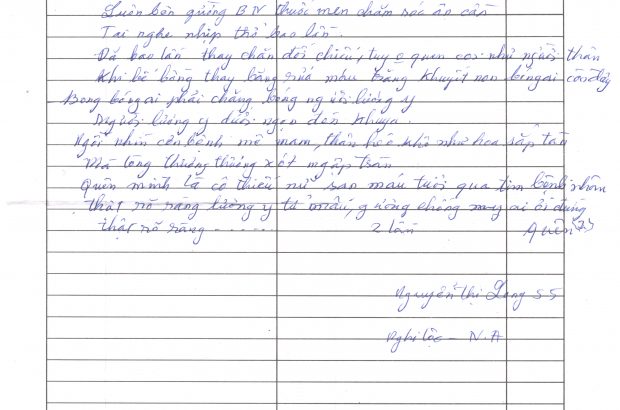 Luôn bên giường BN thuốc men chăm sóc ân cần
Tai nghe nhịp thở bao lần.
Đã bao lần thay chăn đổi chiếu, tuy o quen coi như người thân
Khi bế bồng thay băng rửa máu trăng khuyết non bóng ai còn đây
Bong bóng ai phải chăng bóng người lương y
Người lương y dưới ngọn đèn khuya.
Ngồi nhìn con bệnh mê man, thân héo khô như hoa sắp tàn
Mà lòng thương thương xót ngập tràn
Quên mình là cô thiếu nữ sao máu tuổi qua tim bệnh nhân
thật rõ ràng lương y từ mẫu, gương chồng my ai ơi đừng
thật rõ ràng ...... 2 lần Quên
Nguyễn Thị Long S5
Nghi Lộc - N.A